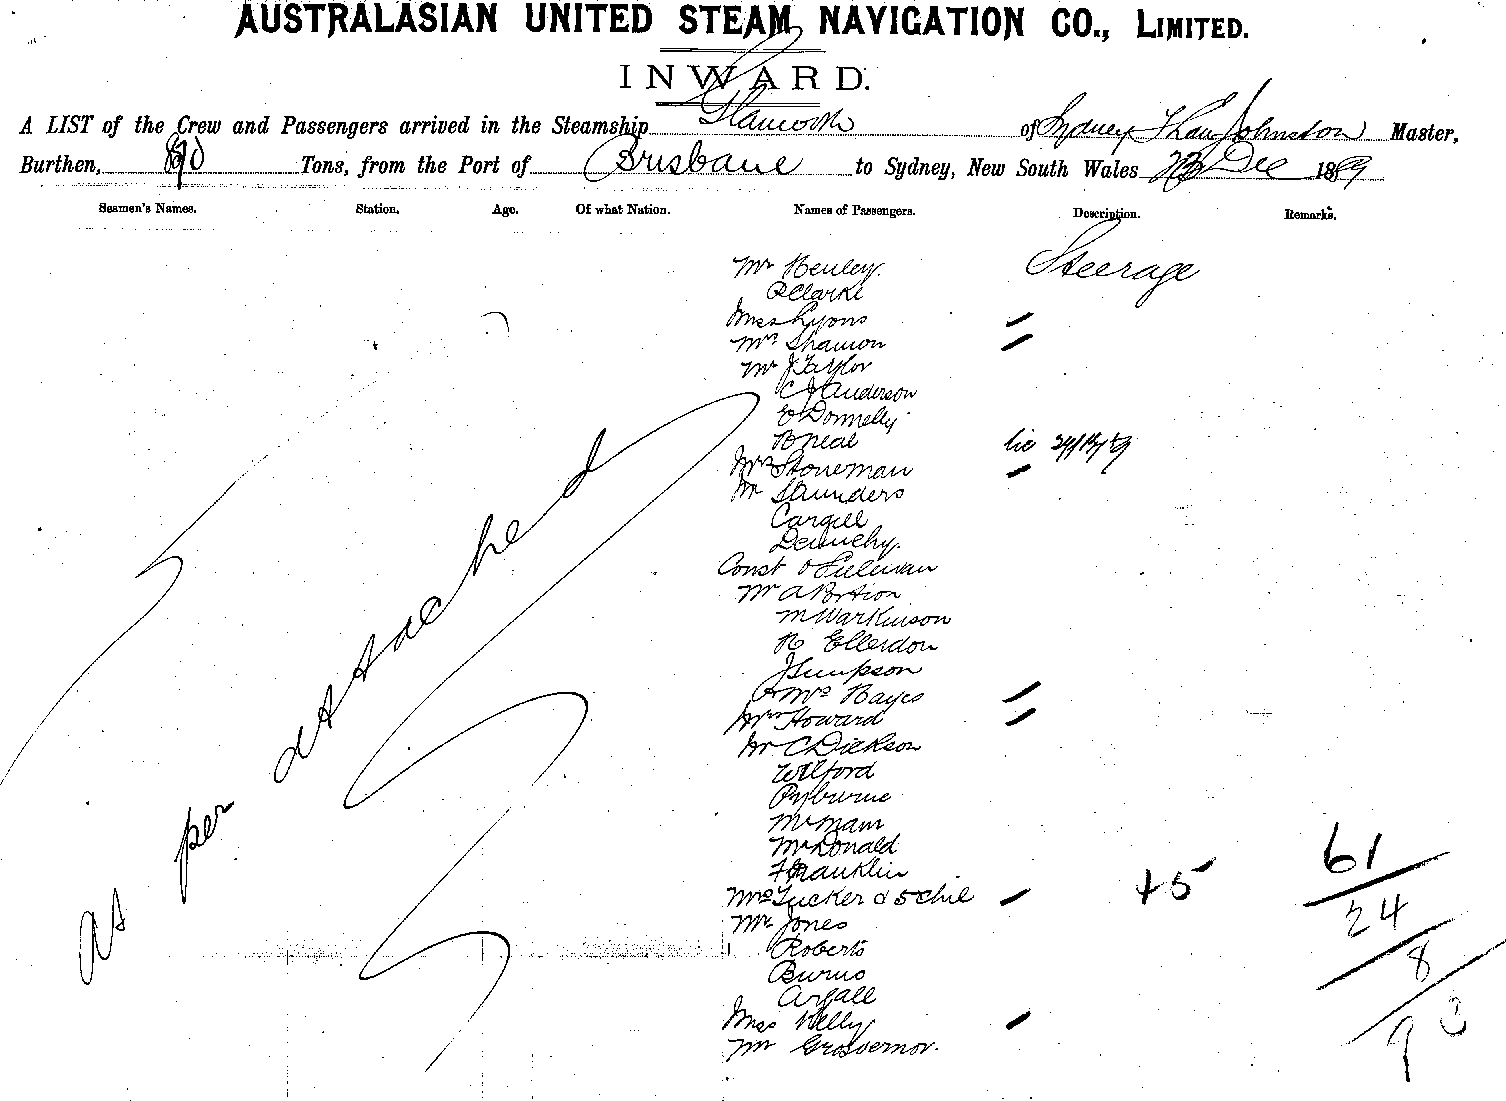 AUSTRALASIAN UNITED STEAM NAVIGATION CO., LIMITED.
INWARD.
A LIST of the Crew and Passengers arrived in the Steamship Glanworth of Sydney, Johnston Master,
Burthen, 890 Tons, from the Port of Brisbane to Sydney, New South Wales Dec 1889
Seamen's Names. Station. Age. Of what Nation. Names of Passengers. Description. Remarks.
Mr Henley. Steerage
P Clarke
Miss Lyons
Mrs Shannon
Mr J Taylor
C J Anderson
E Donnelly
B Neal
Mrs Stoneman
Mr Saunders
Cargill
Denuchy.
Const O'Sullivan
Mr A
M Warkinson
R Ellerdon
J Simpson
Mrs Hayes
Howard
Mr C Dickson
Wilford
Pyburne
McMam
McDonald
Franklin
Mrs Tucker & 5 Chil + 5
Mr Jones
Roberts
Burns
Argall
Miss Kelly
Mr Grosvernor.
as per attached
61
24
8
93